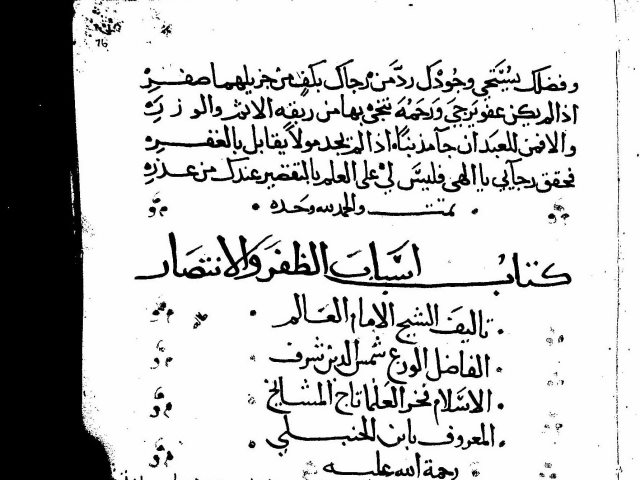 وفضلك يستحي وجودك ردّ من رجاك بكف من جزيلهما صفر
اذا لم يكن عفو يرجى ورحمة ينجى بها من ربقه الاثم والوزر
والا فمن للعبد ان جآ مذنبًا اذا لم يجد مولاً يقابل بالغفر
فحقق رجآئي يا الهي فليس لي على العلم بالتقصير عندك من عذر
تمت والحمد لله وحده
كتاب اسباب الظفر والانتصار
تاليف الشيخ الامام العالم
الفاضل الورع شمس الدين شرف
الاسلام فخر العلما تاج المشايخ
المعروف بابن الحنبلي
رحمة الله عليه